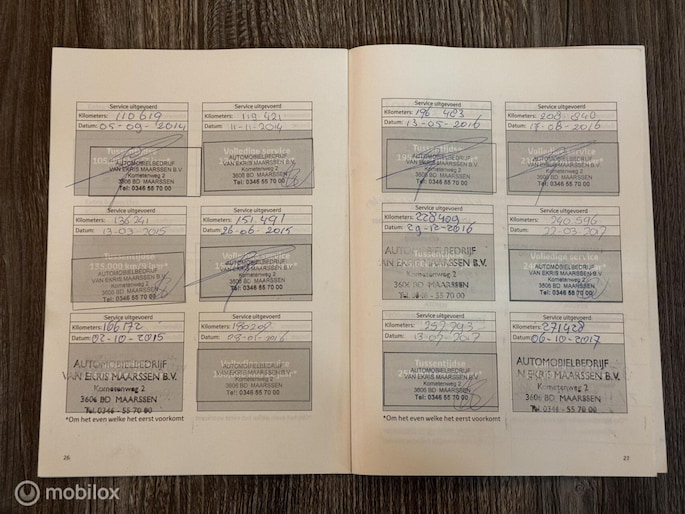 Service uitgevoerd
Kilometers: 110 619
Datum: 05-09-2014
Tussentijdse
AUTOMOBIELBEDRIJF
VAN EKRIS MAARSSEN B.V.
Kometenweg 2
3606 BD MAARSSEN
Tel: 0346 55 70 00
Service uitgevoerd
Kilometers: 119 421
Datum: 11-11-2014
Volledige service
AUTOMOBIELBEDRIJF
VAN EKRIS MAARSSEN B.V.
Kometenweg 2
3606 BD MAARSSEN
Tel: 0346 55 70 00
Service uitgevoerd
Kilometers: 136 241
Datum: 13-03-2015
Tussentijdse
135.000 km/9 jaar*
AUTOMOBIELBEDRIJF
VAN EKRIS MAARSSEN B.V.
Kometenweg 2
3606 BD MAARSSEN
Tel: 0346 55 70 00
Service uitgevoerd
Kilometers: 151.491
Datum: 26-06-2015
AUTOMOBIELBEDRIJF
VAN EKRIS MAARSSEN B.V.
Kometenweg 2
3606 BD MAARSSEN
Tel: 0346 55 70 00
Service uitgevoerd
Kilometers: 166172
Datum: 02-10-2015
AUTOMOBIELBEDRIJF
VAN EKRIS MAARSSEN B.V.
Kometenweg 2
3606 BD MAARSSEN
Tel. 0346 - 55 70 00
Service uitgevoerd
Kilometers: 180208
Datum: 08-01-2016
Volledige service
AUTOMOBIELBEDRIJF
VAN EKRIS MAARSSEN B.V.
Kometenweg 2
3606 BD MAARSSEN
Tel: 0346 55 70 00
*Om het even welke het eerst voorkomt
26
Service uitgevoerd
Kilometers: 196 483
Datum: 13-05-2016
Tussentijdse
AUTOMOBIELBEDRIJF
VAN EKRIS MAARSSEN B.V.
Kometenweg 2
3606 BD MAARSSEN
Tel: 0346 55 70 00
Service uitgevoerd
Kilometers: 208 840
Datum: 17-08-2016
Volledige service
AUTOMOBIELBEDRIJF
VAN EKRIS MAARSSEN B.V.
Kometenweg 2
3606 BD MAARSSEN
Tel: 0346 55 70 00
Service uitgevoerd
Kilometers: 228409
Datum: 29-12-2016
AUTOMOBIELBEDRIJF
VAN EKRIS MAARSSEN B.V.
Kometenweg 2
3606 BD MAARSSEN
Tel. 0346 - 55 70 00
Service uitgevoerd
Kilometers: 240 596
Datum: 22-03-2017
Volledige service
AUTOMOBIELBEDRIJF
VAN EKRIS MAARSSEN B.V.
Kometenweg 2
3606 BD MAARSSEN
Tel: 0346 55 70 00
Service uitgevoerd
Kilometers: 252 943
Datum: 2017
Tussentijdse
AUTOMOBIELBEDRIJF
VAN EKRIS MAARSSEN B.V.
Kometenweg 2
3606 BD MAARSSEN
Tel: 0346 55 70 00
Service uitgevoerd
Kilometers: 271428
Datum: 06-10-2017
AUTOMOBIELBEDRIJF
N EKRIS MAARSSEN B.V.
Kometenweg 2
3606 BD MAARSSEN
Tel. 0346 - 55 70 00
*Om het even welke het eerst voorkomt
27
mobilox